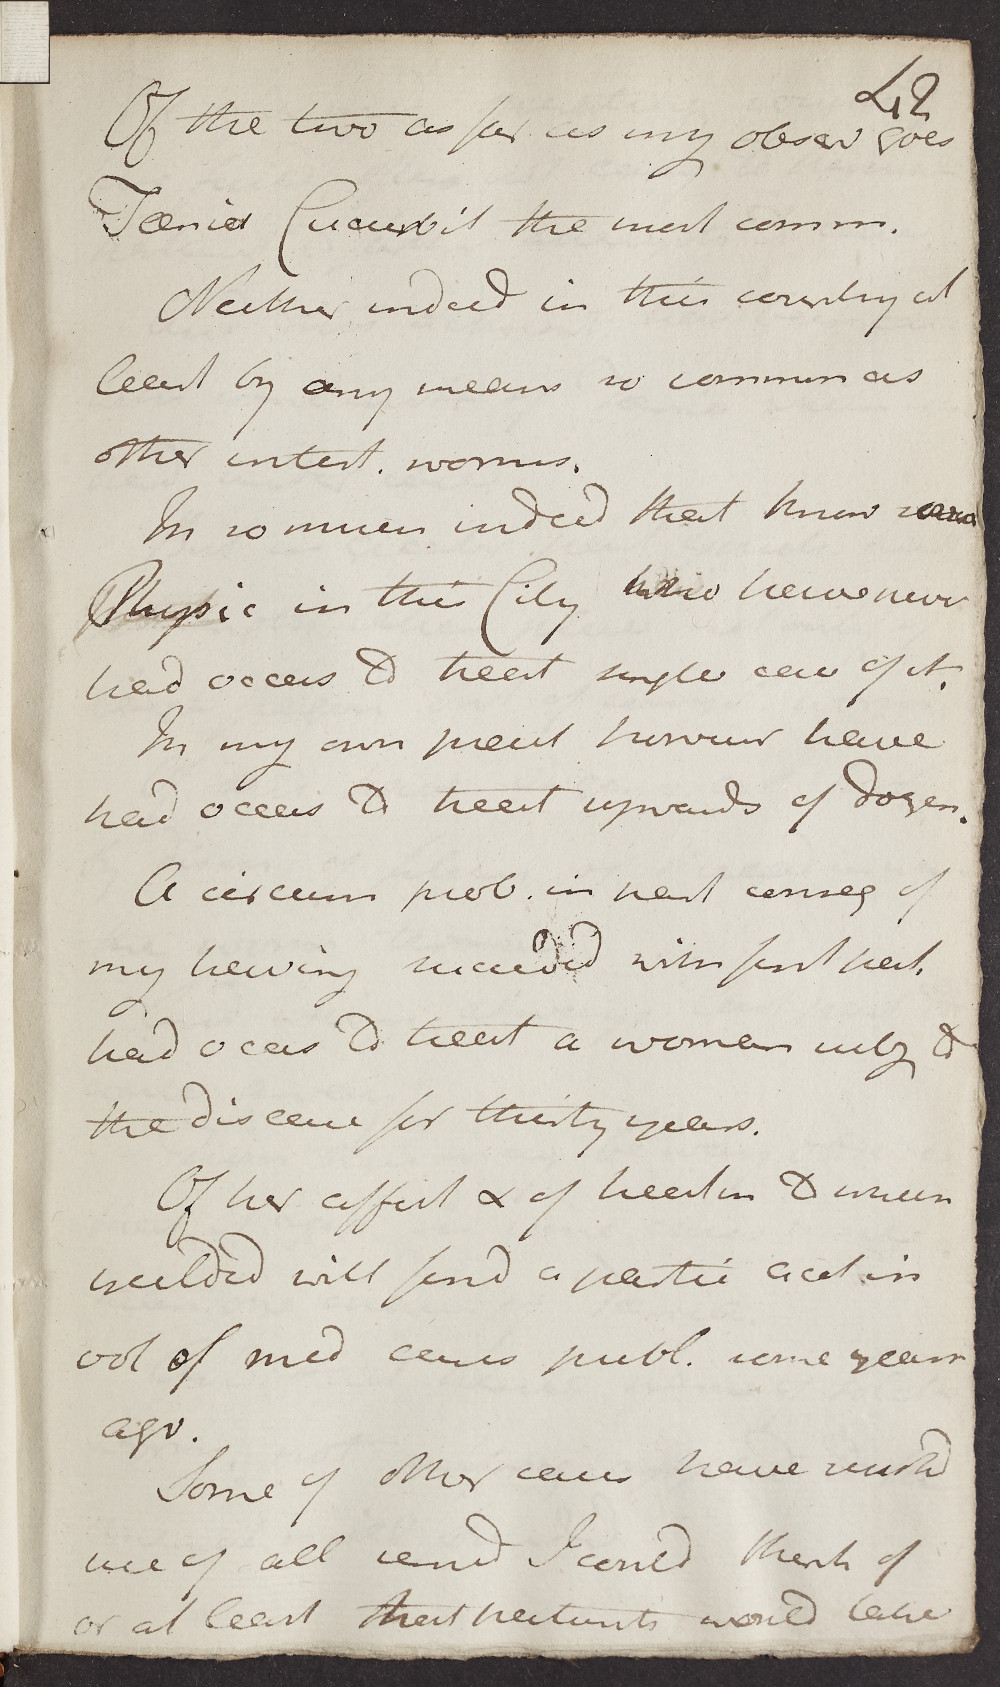 42
Of the two as far as my obser goes
Tænia Cucurbit the most comm.
Neither indeed in this country at
least by any means so common as
other intest. worms.
In so much indeed that know some
Physic in this City who have never
had occas to treat single case of it.
In my own pract however have
had occas to treat upwards of dozen.
A circum prob. in part conseq of
my having succeeded with first pat.
had occas to treat a woman subj to
the disease for thirty years.
Of her affect & of treatm to which
yeilded will find a partic acct in
vol of med cases publ. some years
ago.
Some of other cases have resistd
use of all remd I could think of
or at least that patients would take